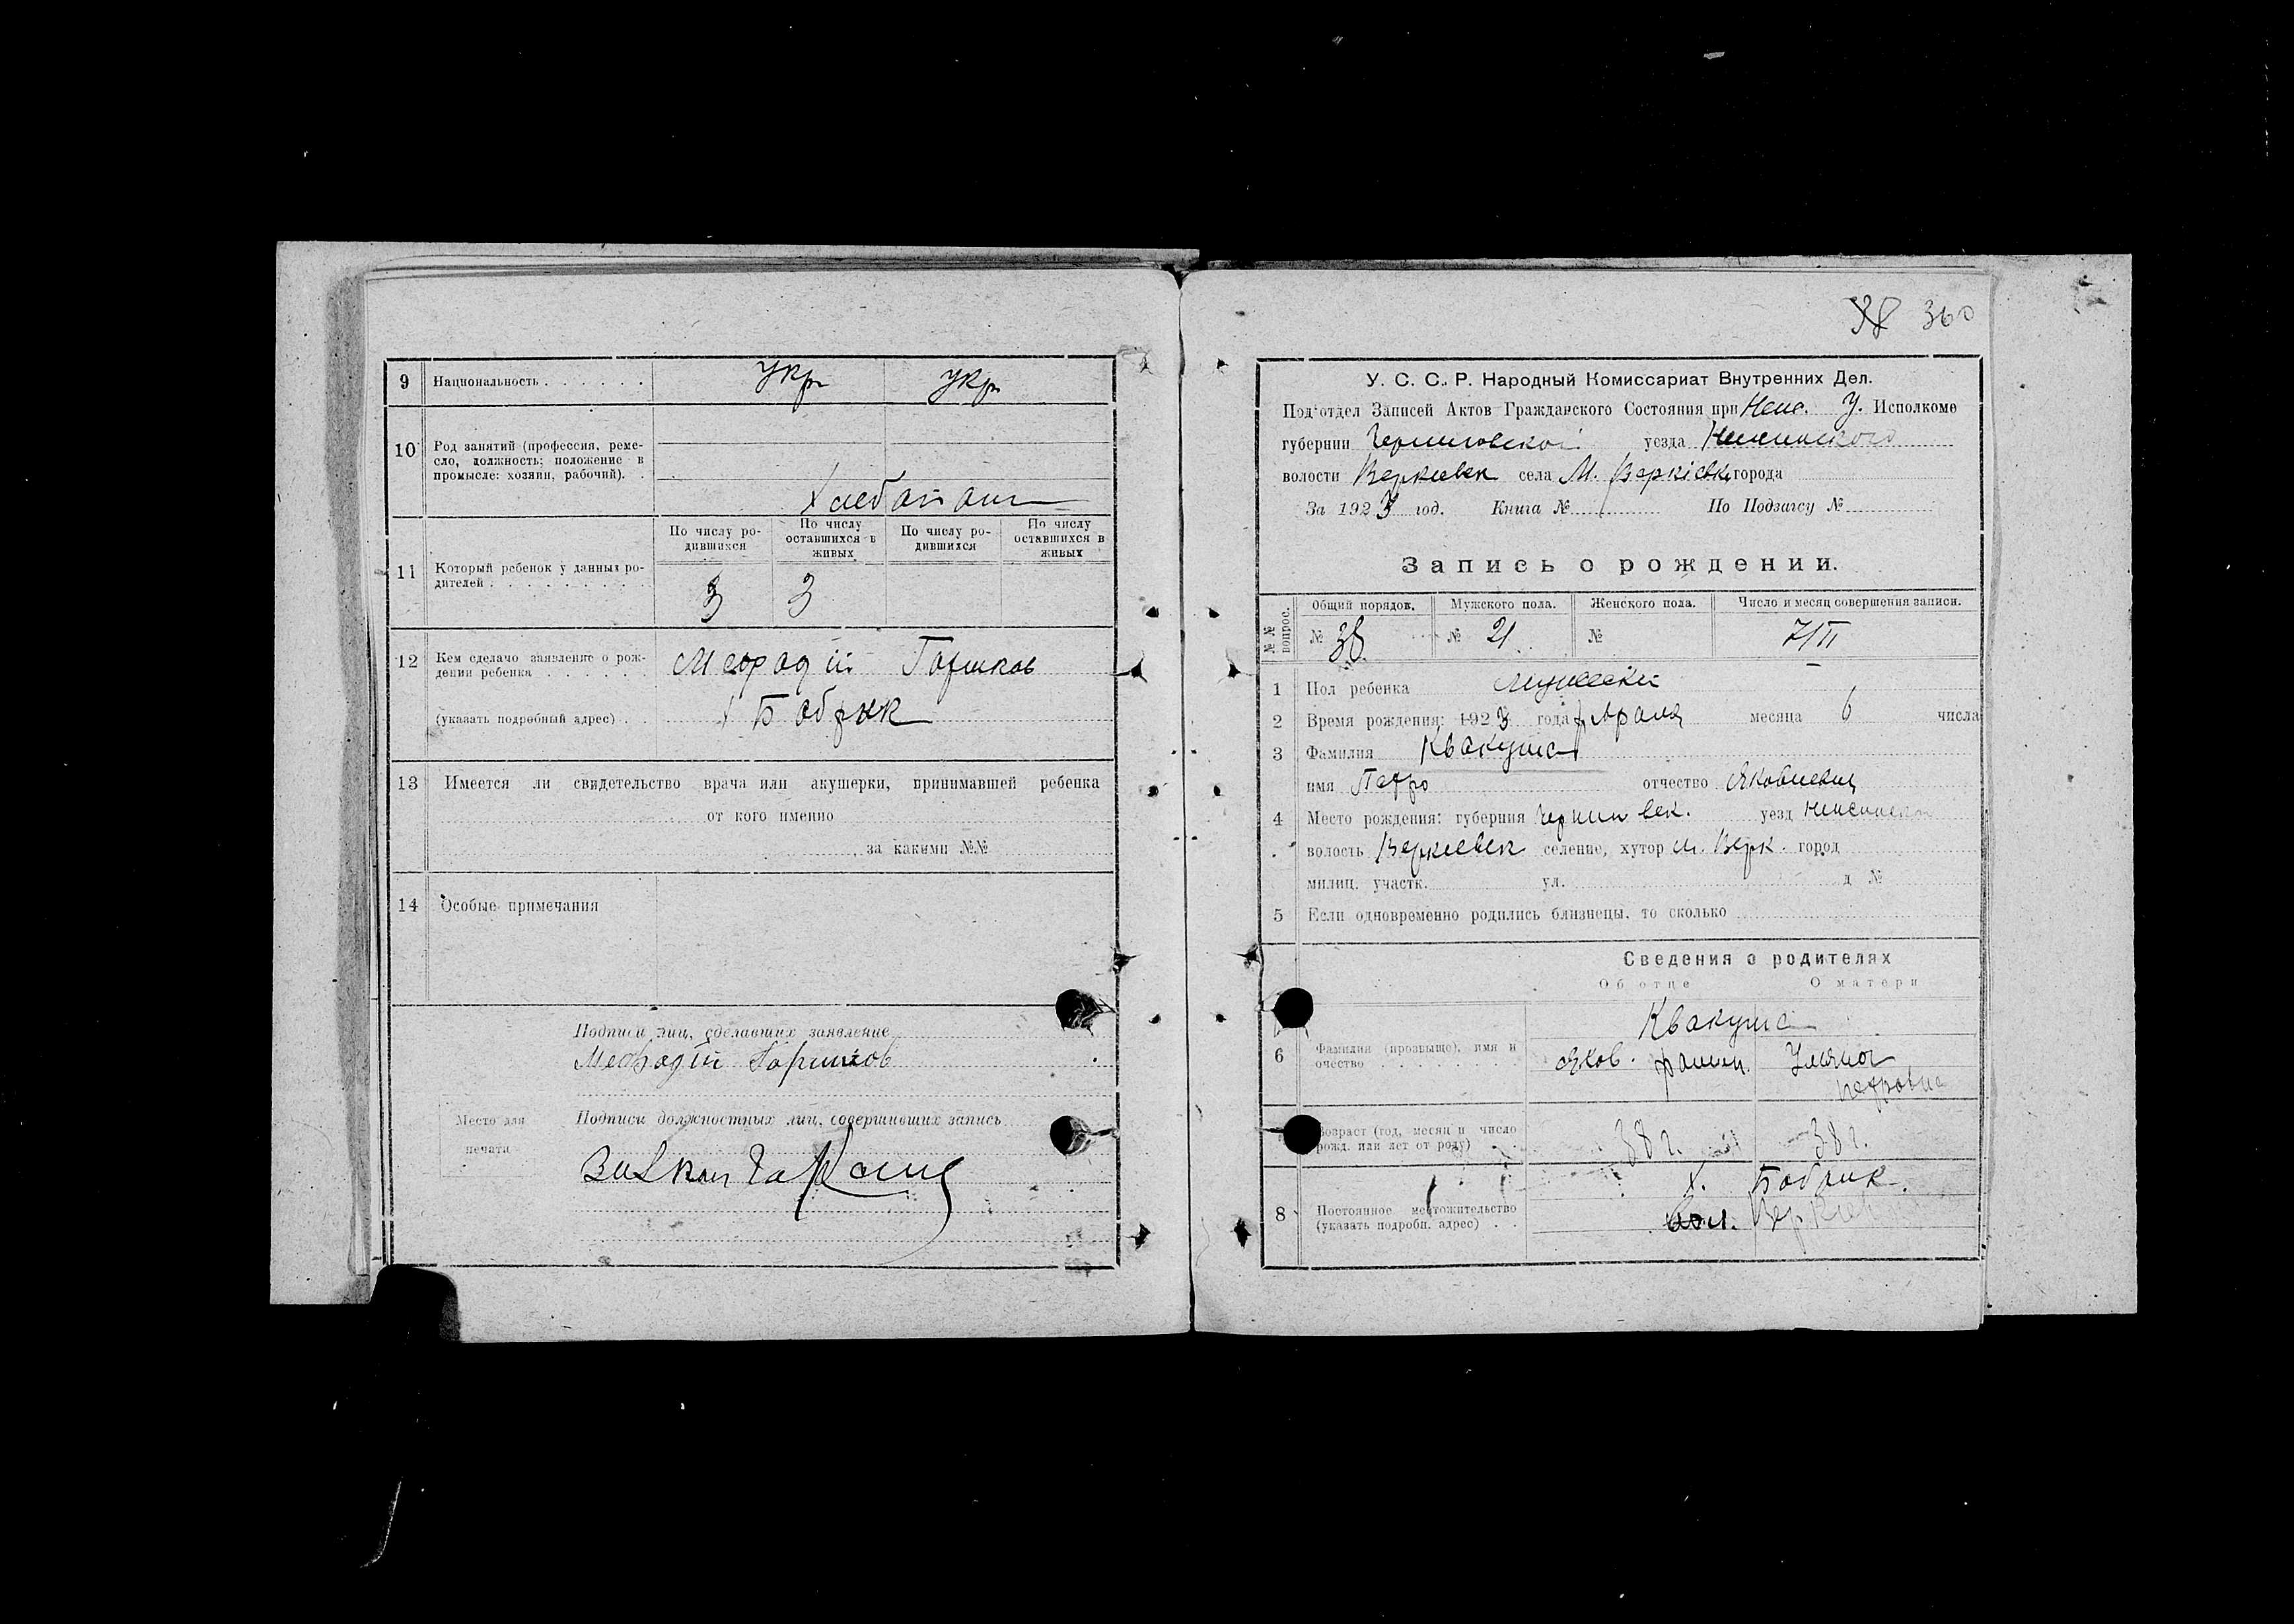 9 Национальность . . . . . . укр укр
10 Род занятий (профессия, реме-
сло, должность; положение в
промысле: хозяин, рабочий). .
Хлебопаш
По числу ро-
дившихся
По числу
оставшихся в
живых
По числу ро-
дившихся
По числу
оставшихся в
живых
11 Который ребенок у данных ро-
дителей . . . . . . . . .
3 3
12 Кем сделано заявление о рож-
дении ребенка . . . . . . Мефодій Горшков
(указать подробный адрес) . . х Бобрик
13 Имеется ли свидетельство врача или акушерки, принимавшей ребенка
от кого именно
, за какими №№
14 Особые примечания
Подписи лиц, сделавших заявление
Мефодій Горшков
Место для
печати
Подписи должностных лиц, совершивших запись
38 360
У. С. С. Р. Народный Комиссариат Внутренних Дел.
Подотдел Записей Актов Гражданского Состояния при Неж. У. Исполкоме
губернии Черниговской уезда Нежинского
волости Веркиевск села М. Веркіевк города
За 1923 год. Книга № По Подзагсу №
Запись о рождении.
№ № вопрос.
Общий порядов. Мужского пола. Женского пола. Число и месяц совершения записи.
№ 38 № 21 № 7/II
1 Пол ребенка мужески
2 Время рождения: 1923 года февраля месяца 6 числа
3 Фамилия Квакуша
имя Петро отчество Яковлевич
4 Место рождения: губерния Черниговск. уезд Нежинск
волость Веркиевск селение, хутор м. Верк. город
милиц. участк. ул. д №
5 Если одновременно родились близнецы, то сколько
Сведения о родителях
Об отце О матери
Квакуша
6 Фамилия (прозвище), имя и
очество . . . . . . . . Яков. Ульяна
Петровна
Возраст (год, месяц и число
рожд. или лет от роду) . . 38 г. 38 г.
х. Бобрик.
8 Постоянное местожительство
(указать подробн. адрес) . . вол. Веркиев